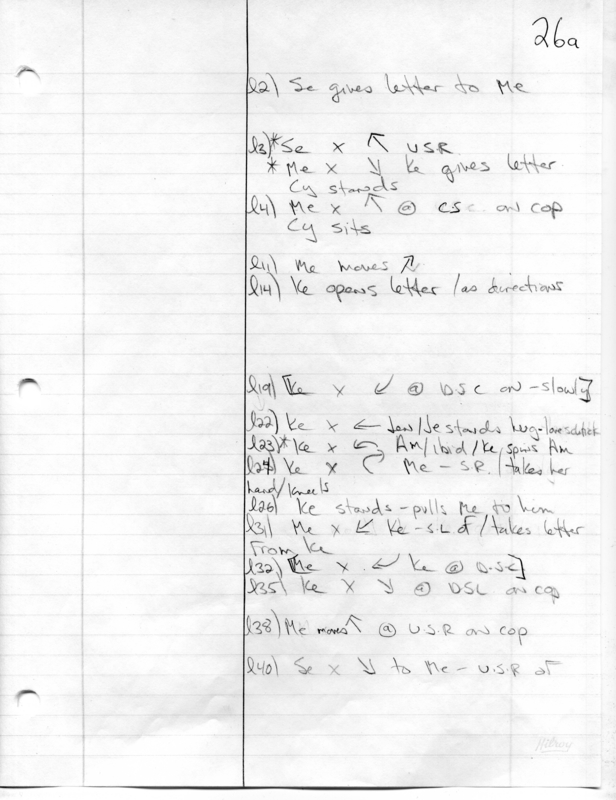 26a
l2) Se gives letter to Me
l3)* Se x ↖ USR
* Me x ↘ Ke gives letter
Cy stands
l4) Me x ↖ @ CSC on cop
Cy sits
l11) Me moves ↗
l14) Ke opens letter /as directions
l19) [Ke x ↙ @ DSC on - slowly]
l22) Ke x ← Jen/Je stands hug-
l23)* Ke x Am/ibid/Ke spins Am
l24) Ke x Me - SR /takes her
hand/kneels
l26) Ke stands - pulls Me to him
l31) Me x ↙ Ke - S.L of/takes letter
From Ke
l32) [Me x ↙ Ke @ D.S.C]
l35) Ke x ↘ @ DSL on cop
l38) Me moves ↖ @ U.S.R on cop
l40) Se x ↘ to Me - U.S.R of
Hilroy